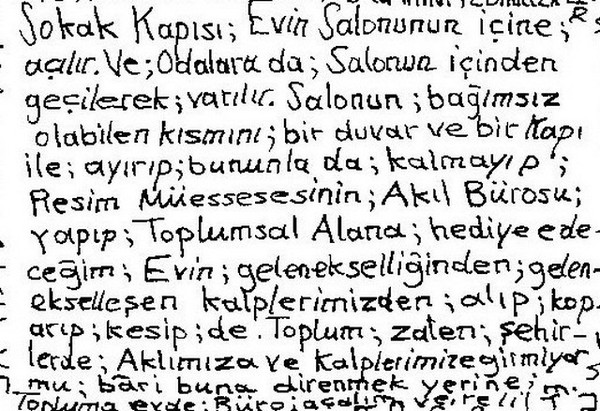 Sokak Kapısı; Evin Salonunun içine;
açılır. Ve; Odalara da; Salonun içinden
geçilerek; varılır. Salonun; bağımsız
olabilen kısmını; bir duvar ve bir Kapı
ile; ayırıp; bununla da; kalmayıp;
Resim Müessesesinin; Akıl Bürosu;
yapıp; Toplumsal Alana; hediye ede-
ceğim; Evin; gelenekselliğinden; gelen-
ekselleşen kalplerimizden; alıp; kop-
arıp; kesip; de. Toplum; zaten; şehir-
lerde; Aklımıza ve kalplerimize girmiyor
mu; bâri buna direnmek yerine;
Topluma evde; Büro; açalım